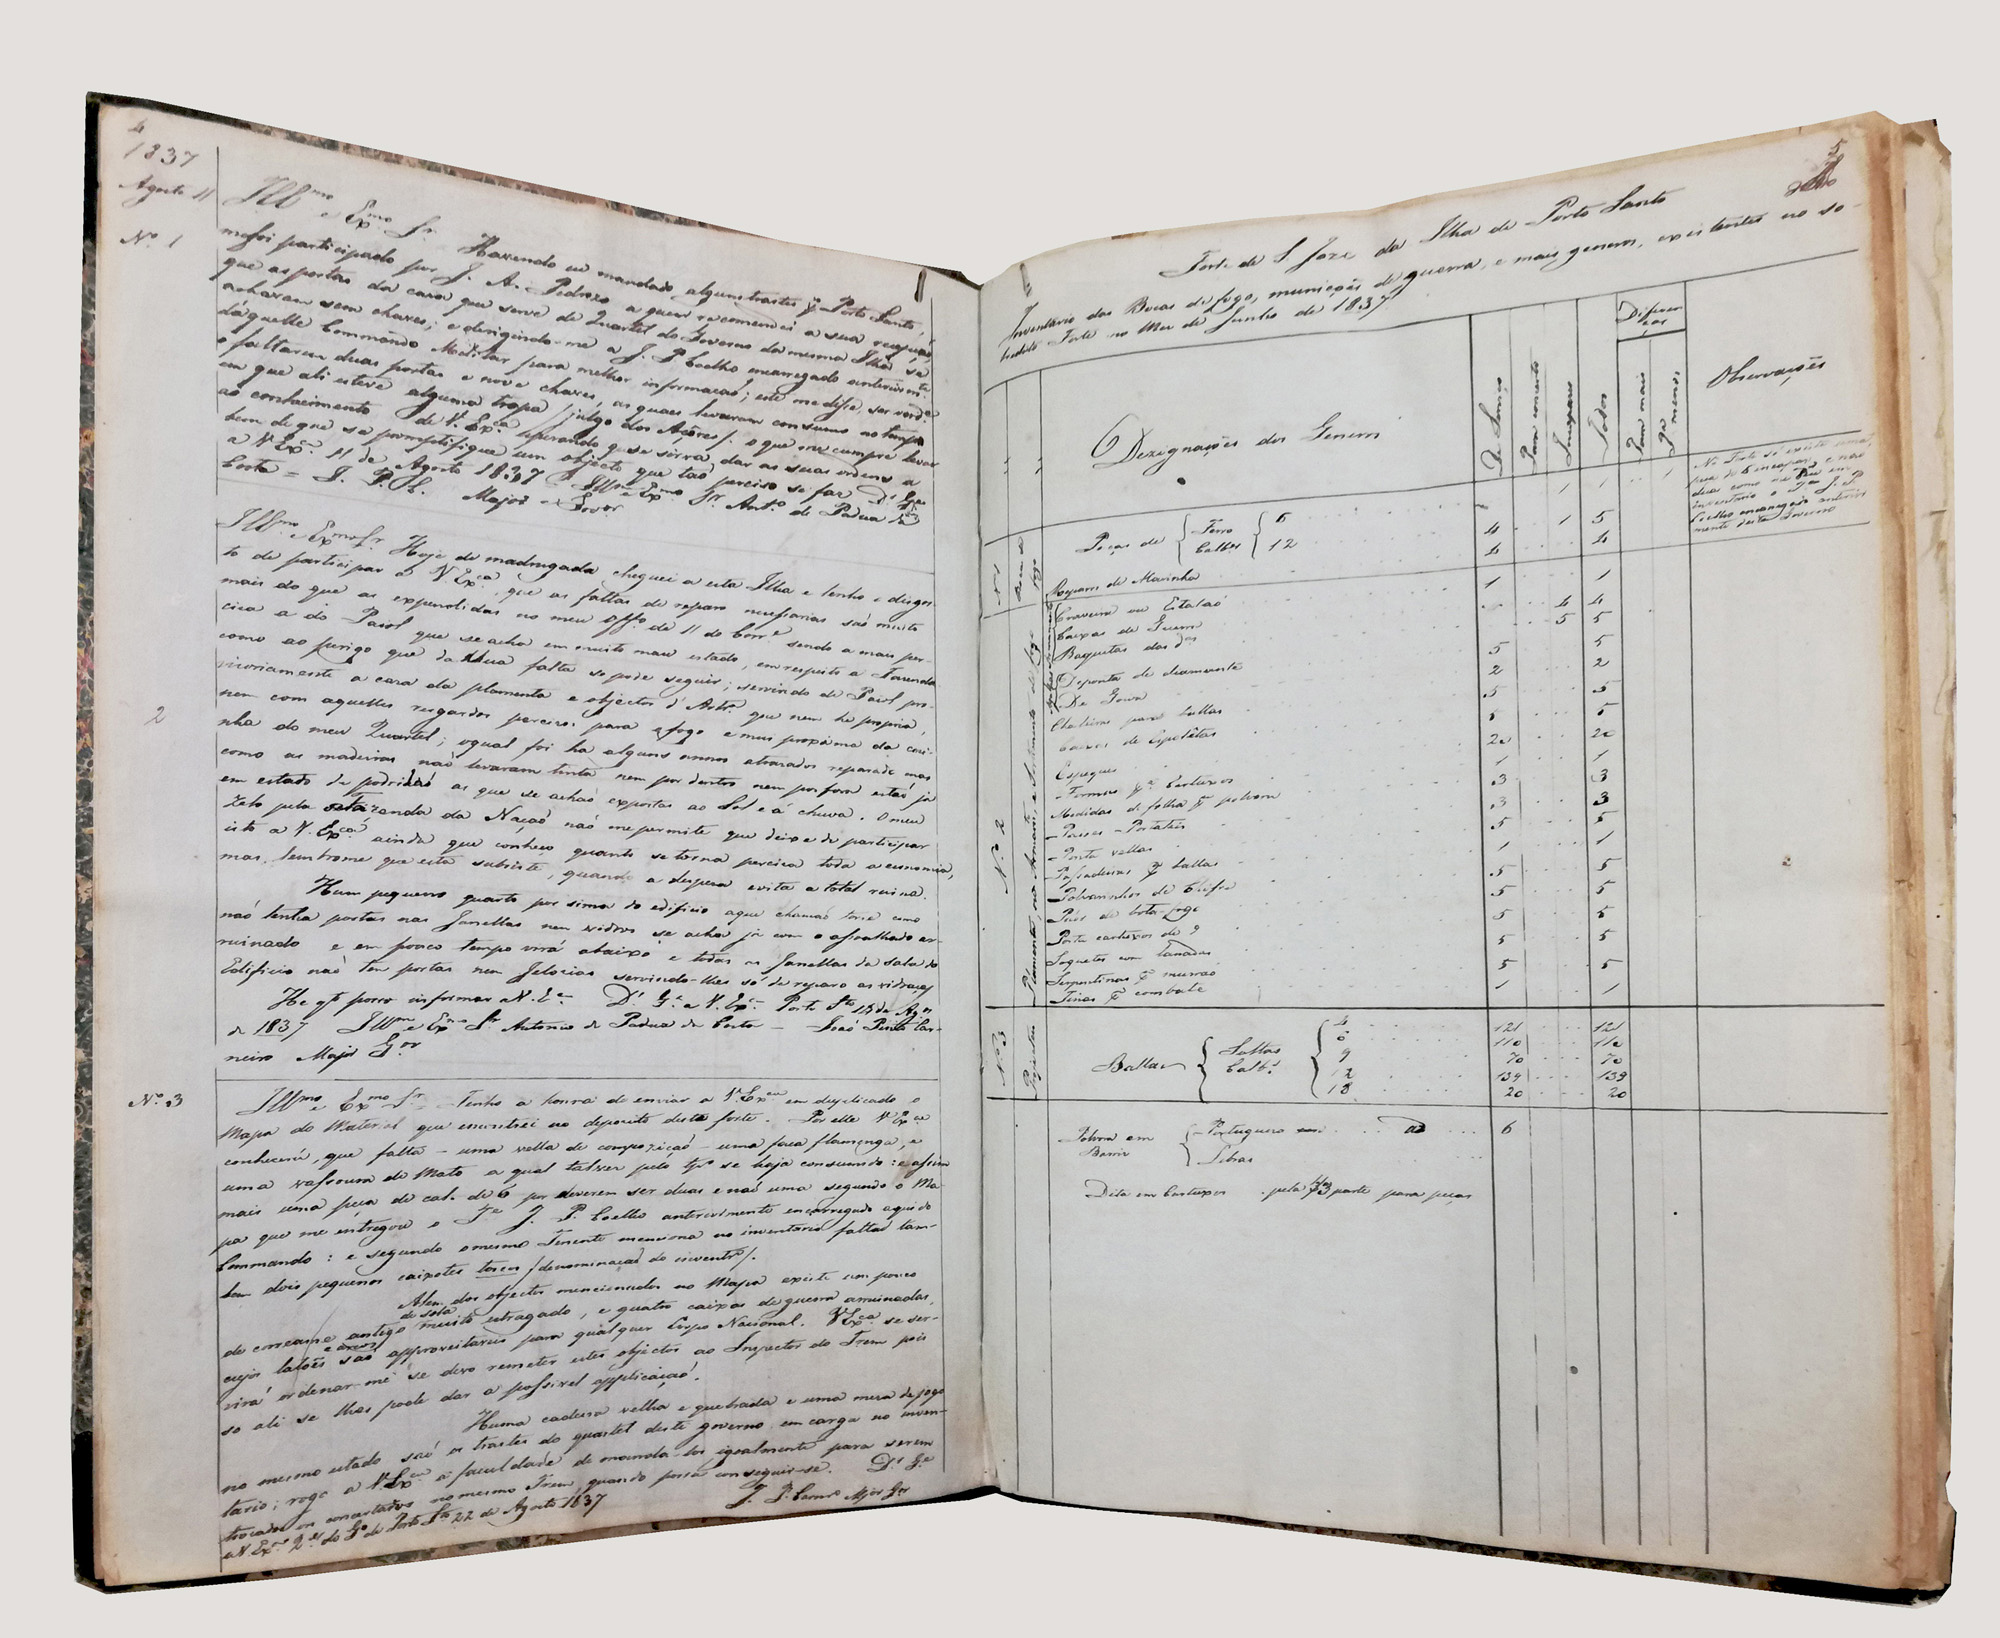 4
1837
Agosto 11
Nº 1
Illmo e Exmo Sr. Havendo eu mandado alguns trastes pª Porto Santo,
me foi participado por J. A. Pedrozo a quem recomendei a sua
que as portas da casa que serve de Quartel do Governo da mesma Ilha se
acharam sem chaves; e dirigindo-me a J. P. Coelho encarregado anteriormte
dáquelle Commando Militar para melhor informação; este me disse, ser verde
o faltarem duas portas e nove chaves, as quaes levaram consumo no tempo
em que ali esteve alguma tropa /julgo dos Açores/. o que me cumpre levar
ao conhecimento de V. Exca esperando que se sirva dar as suas ordens a
bem de que se um objecto que tão perciso se faz Ds Ge
a V. Exca 11 de Agosto 1837 Illmo e Exmo Sr. Anto de Padua da
Costa = J. P. Major Govor
2
Illmo e Exmo Sr. Hoje de madrugada cheguei a esta Ilha e tenho o disgos-
to de participar a V. Exca, que as faltas de reparo necessarias são muito
mais do que as expendidas no meu offo de 11 do Corre sendo a mais per-
ciza a do Paiol que se acha em muito mau estado, em respeito a Fazenda
como ao perigo que da sua falta se pode seguir; servindo de Paiol pro-
vizoriamente a caza da plamenta e objectos d'Artra que nem he propria,
nem com aquelles resguardos percizos para o fogo e mui proxima da cosi-
nha do meu Quartel; o qual foi ha alguns annos atrazados reparado mas
como as madeiras não levaram tinta nem por dentro nem por fora estão já
em estado de podridão as que se achão expostas ao Sol e á chuva. O meu
zelo pela fazenda da Nação não me permite que deixe de participar
isto a V. Exca ainda que conheço quanto se torna perciza toda a economia,
mas, lembrome que esta subsiste, quando a despeza evita a total ruina.
Hum pequeno quarto por sima do edificio a que chamão torre como
não tenha portas nas Janellas nem vidros se acha já com o assoalhado ar-
ruinado e em pouco tempo virá abaixo e todas as Janellas da sala do
Edificio não tem portas nem Jelozias servindo-lhes só de reparo as vidraças
He qto posso informar a V. Ea Ds Ge a V. Exca Porto Sto 15 de Agos
de 1837 Illmo e Exmo Sr. Antonio de Padua da Costa — João Pinto Car-
neiro Major Gor
Nº 3
Illmo e Exmo Sr. Tenho a honra de enviar a V. Exca em duplicado o
Mapa do Material que encontrei no deposito deste forte. Por elle V. Exca
conhecerá, que falta — uma vella de compozição — uma faca flamenga, e
uma vassoura de Mato a qual talvez pelo tpo se haja consumido: e assim
mais uma peça de cal. de 6 por deverem ser duas e não uma segundo o Ma-
pa que me entregou o Te J. P. Coelho anteriormente encarregado aqui do
Commando: e segundo o mesmo Tenente menciona no inventario faltão tam-
bem dois pequenos caixotes toscos /denominação do inventro/.
Alem dos objectos mencionados no Mapa existe um pouco
de sola
de correame antigo muito estragado, e quatro caixas de guerra arruinadas,
e arcos
cujos latões são approveitaveis para qualquer Corpo Nacional. V. Exca se ser-
virá ordenar-me se devo remeter estes objectos ao Inspector do Trem pois
so ali se lhes pode dar a possivel applicação.
Huma cadeira velha e quebrada e uma meza de jogo
no mesmo estado são os trastes do quartel deste governo em carga no inven-
tario; rogo a V. Exca a faculdade de manda-los igualmente para serem
trocados ou concertados no mesmo Trem, quando possa conseguir-se. Ds Ge
a V. Exca Qel do Go do Porto Sto 22 de Agosto 1837 J. P. Carnro Major Gor
5
Forte de S. Joze da Ilha de Porto Santo
Inventario das Bocas de fogo, munições de guerra, e mais generos, existentes no so-
bredito Forte no Mez de Junho de 1837
Dezignações dos Generos
De Serviço
Para concerto
Incapazes
Todos
Diferenças
Para mais
Pª menos
Observações
Nº 1
Bocas de fogo
Peças de Ferro Calbes 6 1 1 1
12 4 1 5
No Forte só existe uma
peça de 6 incapaz, e não
duas como me deu em
inventario o Te J. P.
Coelho encarregado anterior
mente deste Governo
Nº 2
Reparos de Marinha 4 4
Craveira ou Estalão 1 1
Caixas de Guerra 4 4
Baquetas das das 5 5
De ponta de diamante 5 5
De Gorra 2 2
Chaleiras para ballas 5 5
Caixas de Espoletas 5 5
Espeques 20 20
Formas pª Cartuxos 1 1
Medidas de folha pª polvora 3 3
Passes-Portateis 3 3
Porta vellas 5 5
Passadeiras pª ballas 1 1
Polvarinhos de Chifre 5 5
Paus de bota-fogo 5 5
Porta cartuxos de 9 5 5
Soquetes com lanadas 5 5
Serpentinas pª murrão 5 5
Tinas pª combate 1 1
Nº 3
Projecteis
Ballas Soltas Calbs 4 121 121
6 110 110
9 70 70
12 139 139
18 20 20
Polvora em Barriz Portuguezes 6
Libras
Dita em Cartuxos pela parte para peças